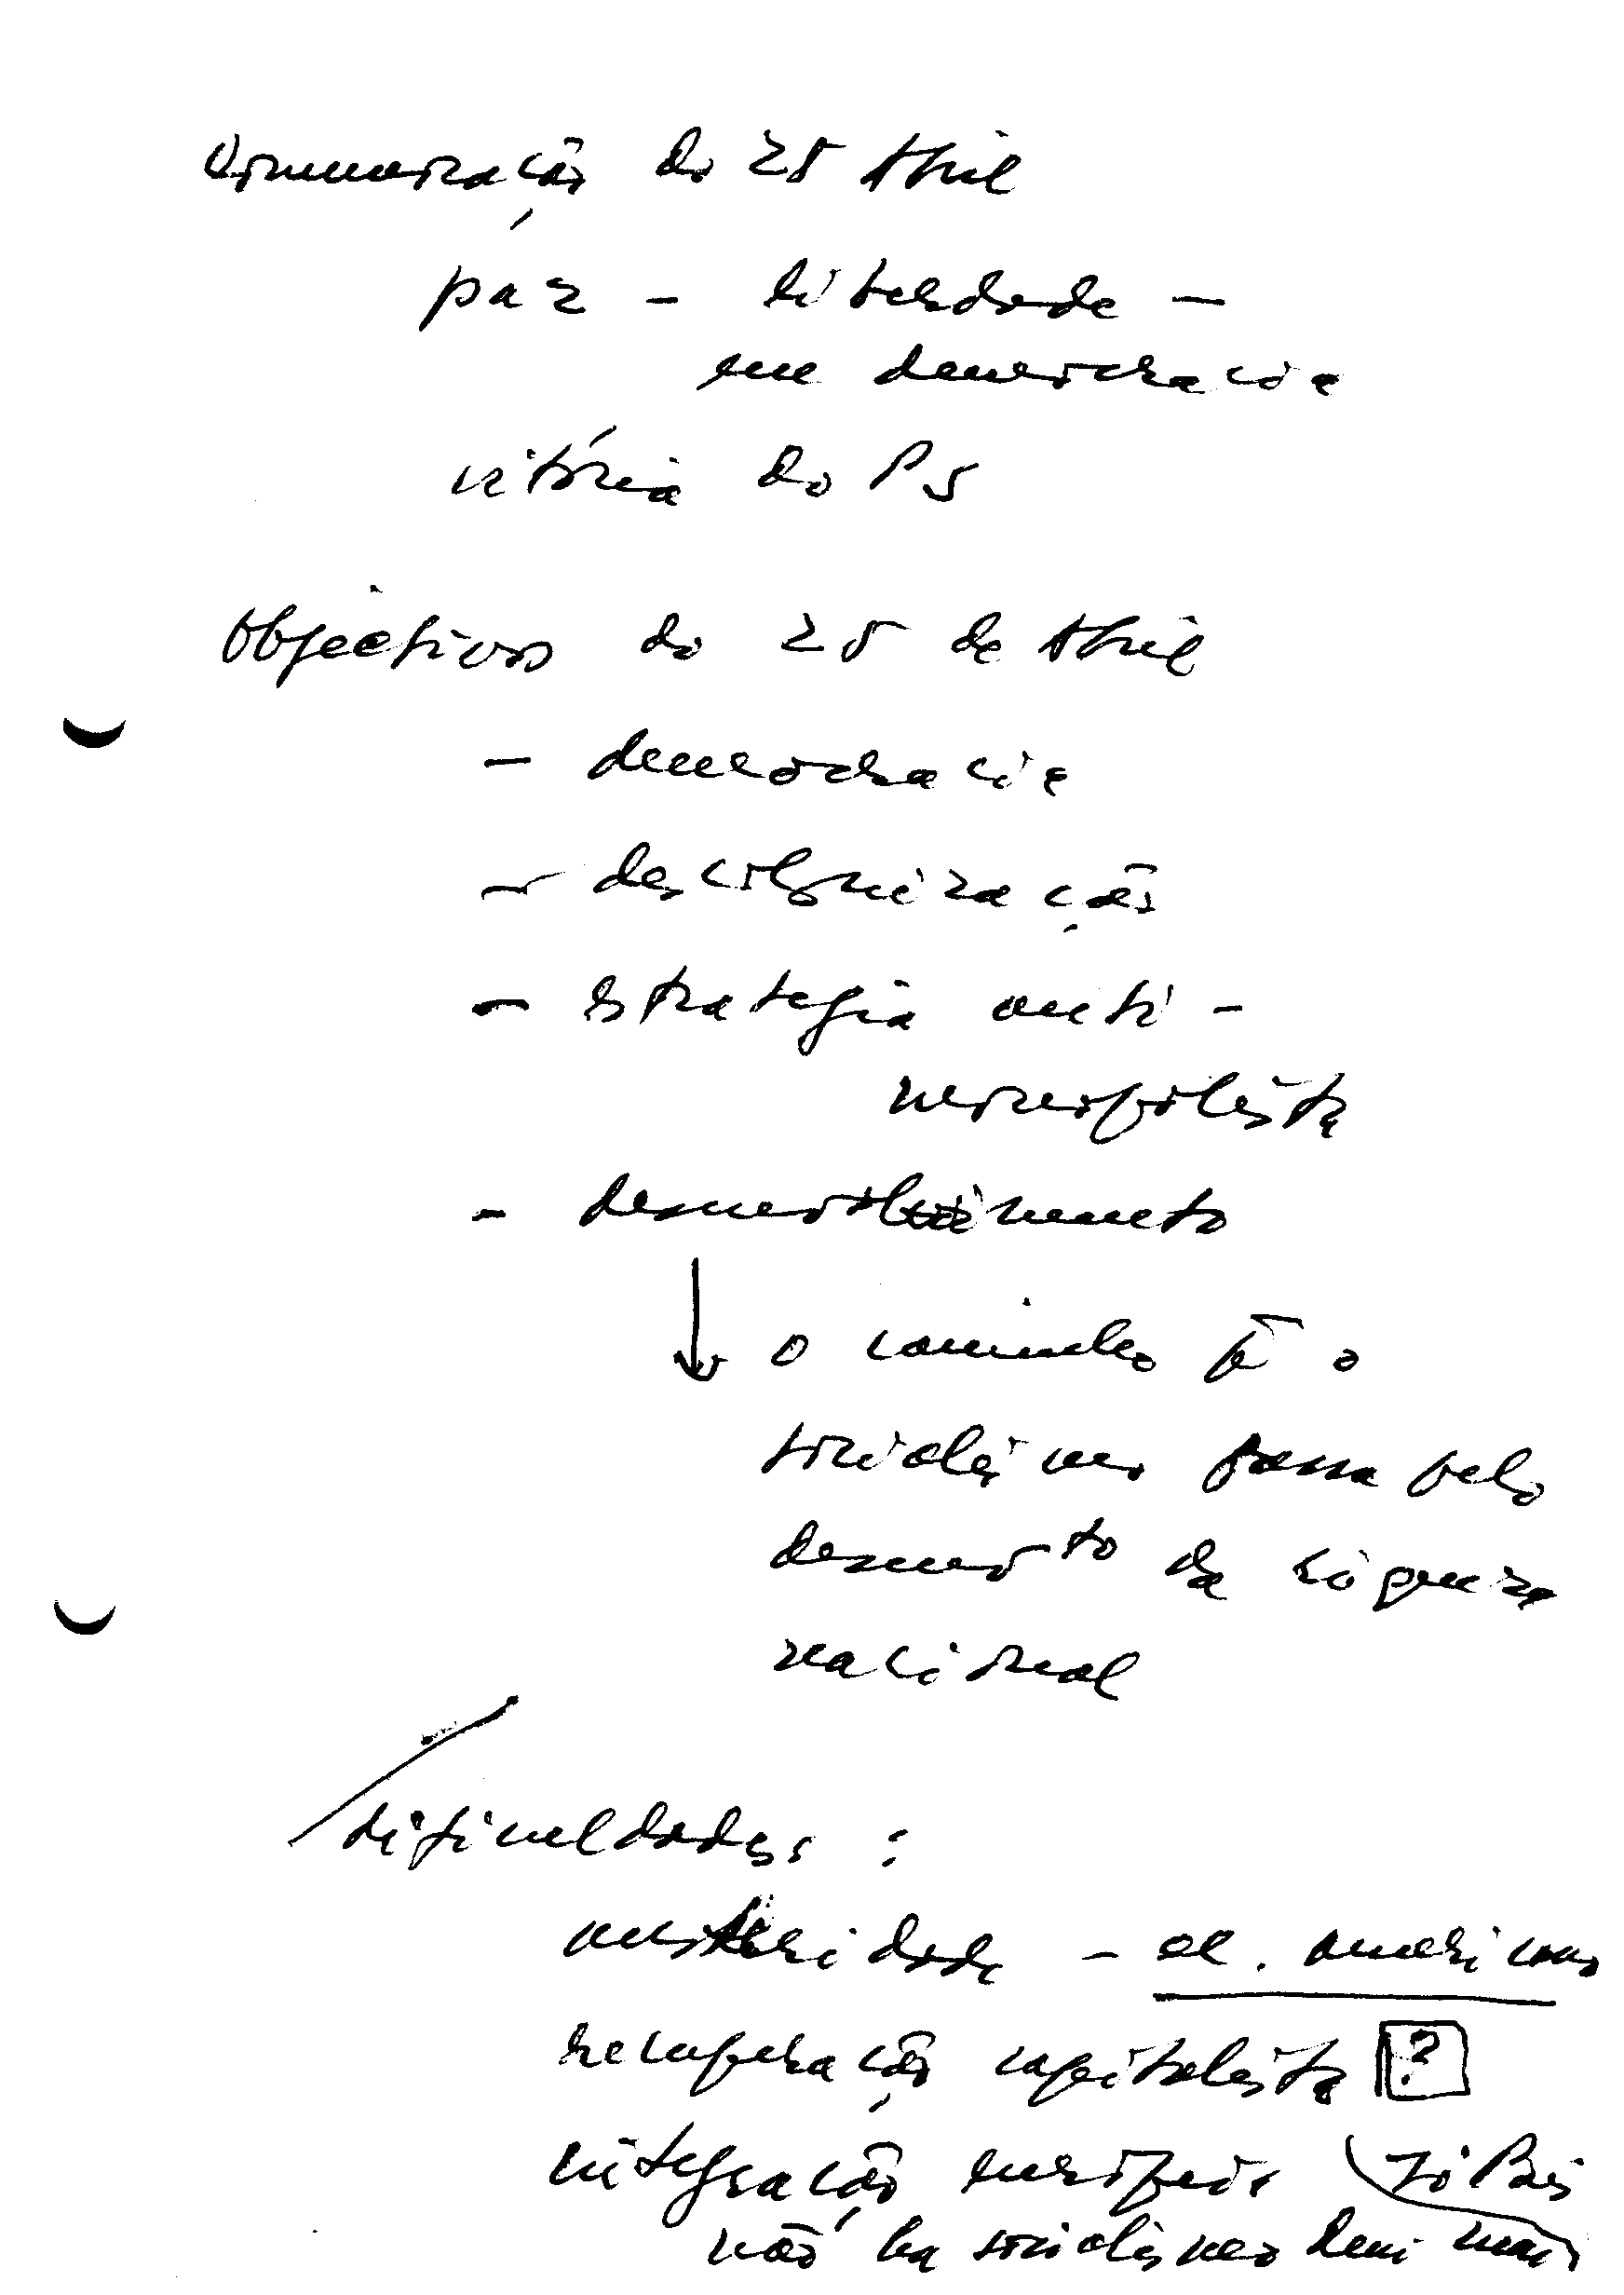 Comemoração do 25 Abril
páz - liberdade -
em democracia
vitória do PS
Objectivos do 25 de Abril
- democracia
- descolonização
- estrategia anti-
monopolista
- desenvolvimento
↓ o caminho p̄ o
socialismo passa pelo
desenvolvto da riqueza
nacional
dificuldades:
austeridade -
recuperação capitalista ?
integração europeia
não há socialismo